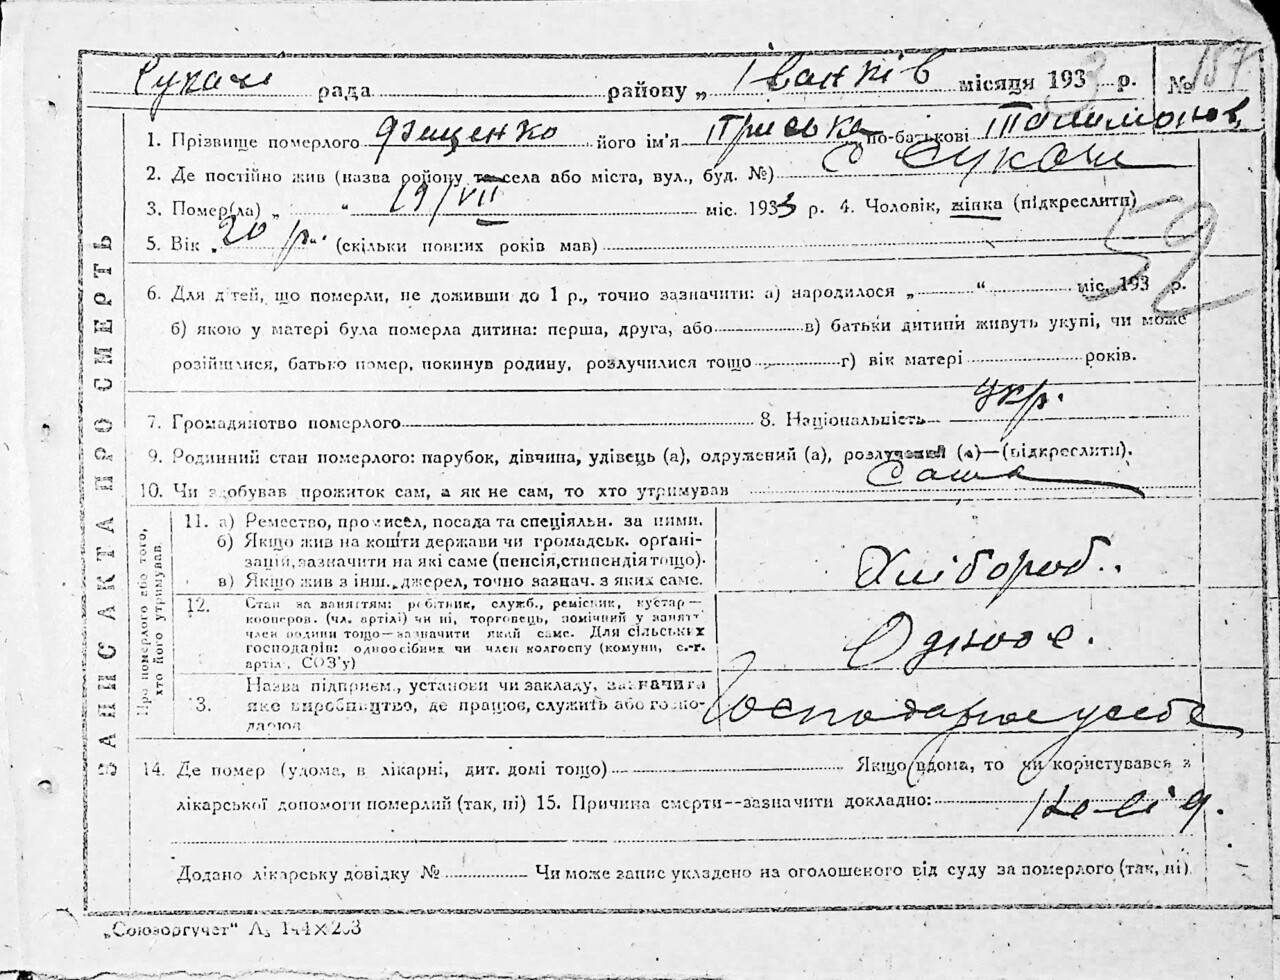 Сукачі рада району „ Іванків місяця 1933 р. № 157
ЗАПИС АКТА ПРО СМЕРТЬ
1. Прізвище померлого Фещенко його ім'я Приська по-батькові
2. Де постійно жив (назва району та села або міста, вул., буд. №) с Сукачі
3. Помер(ла) „ “ 19/VII міс. 1933 р. 4. Чоловік, жінка (підкреслити)
5. Вік 20 р. (скільки повних років мав)
52
6. Для дітей, що померли, не доживши до 1 р., точно зазначити: а) народилося „ “ міс. 193 р.
б) якою у матері була померла дитина: перша, друга, або в) батьки дитини живуть укупі, чи може
розійшлися, батько помер, покинув родину, розлучилися тощо г) вік матері років.
7. Громадянство померлого 8. Національність укр.
9. Родинний стан померлого: парубок, дівчина, удівець (а), одружений (а), розлучений (а)—(підкреслити).
10. Чи здобував прожиток сам, а як не сам, то хто утримував Сама
Про померлого або того, хто його утримував
11. а) Ремество, промисел, посада та спеціяльн. за ними.
б) Якщо жив на кошти держави чи громадськ. орґані-
зацій, зазначити на які саме (пенсія, стипендія тощо).
в) Якщо жив з інш. джерел, точно зазнач. з яких саме.
Хлібороб.
12. Стан за заняттям: робітник, служб., ремісник, кустар—
кооперов. (чл. артілі) чи ні, торговець, помічний у занятт
член родини тощо—зазначити який саме. Для сільських
господарів: одноосібник чи член колгоспу (комуни, с.-г.
артіл., СОЗ'у)
Одноос.
13. Назва підприєм., установи чи закладу, зазначити
яке виробництво, де працює, служить або госпо-
дарює
14. Де помер (удома, в лікарні, дит. домі тощо) Якщо вдома, то чи користувався з
лікарської допомоги померлий (так, ні) 15. Причина смерти--зазначити докладно:
Додано лікарську довідку № Чи може запис укладено на оголошеного від суду за померлого (так, ні)
„Союзоргучет“ А₅ 144×203